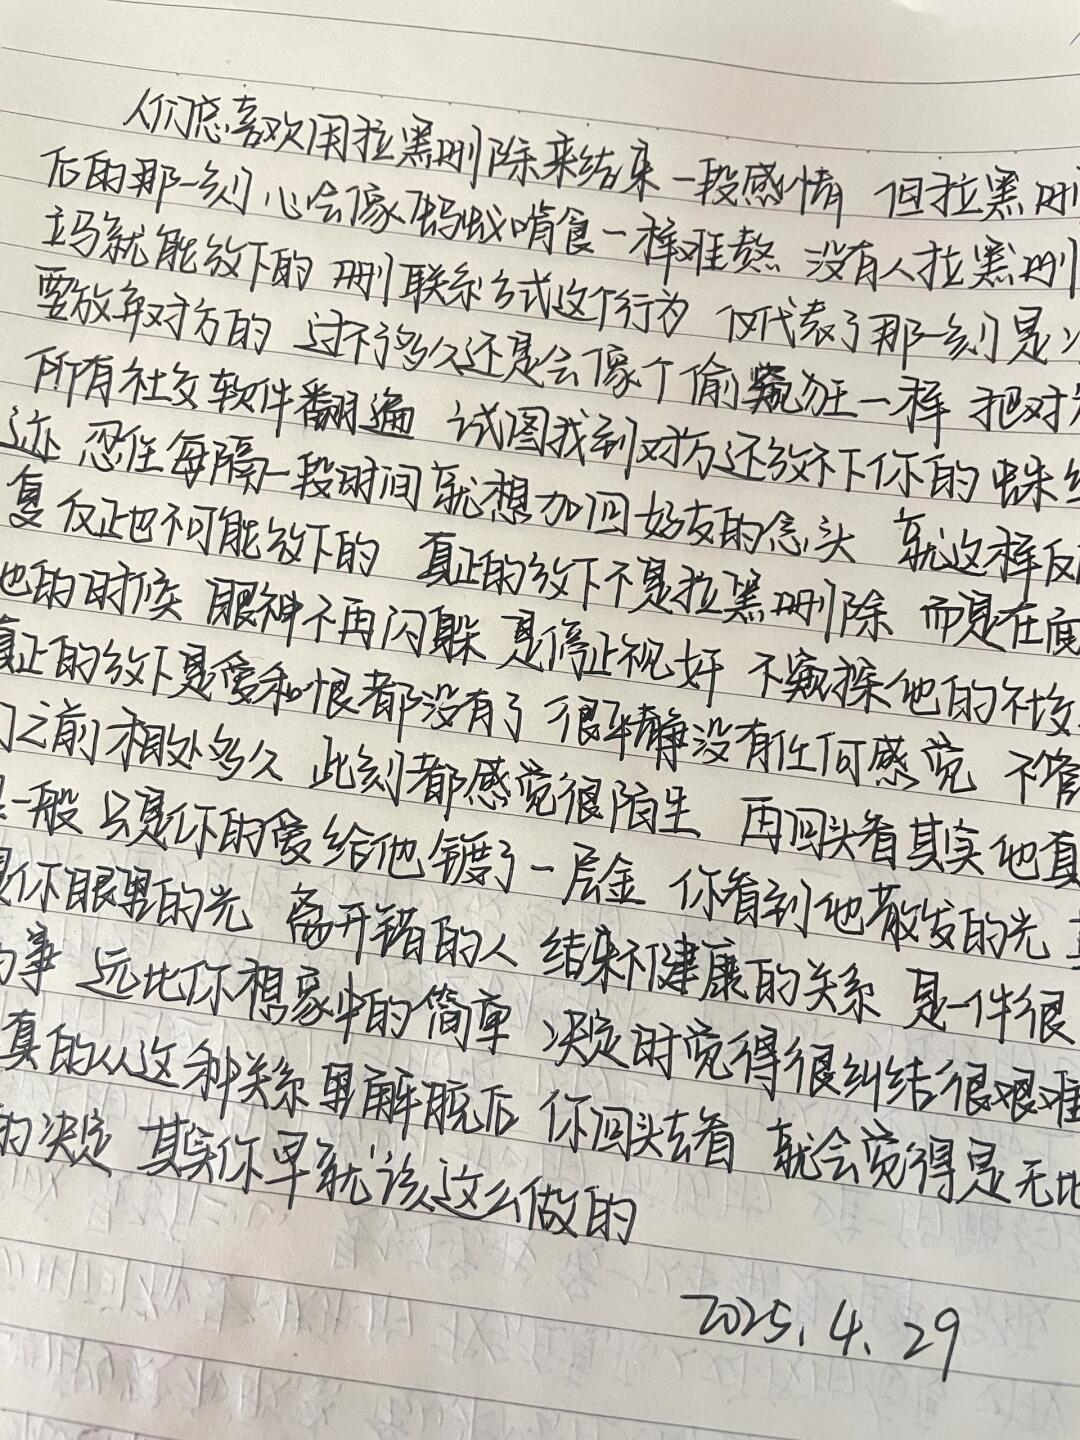 人们总喜欢用拉黑删除来结束一段感情 但拉黑删
后的那一刻 心会像蚂蚁啃食一样难熬 没有人拉黑删
立马就能放下的 删联系方式这个行为 仅代表了那一刻是
要放弃对方的 过不了多久还是会像个偷窥狂一样 把对方
所有社交软件翻遍 试图找到对方还放不下你的蛛丝
迹 忍住每隔一段时间就想加回好友的念头 就这样反
复 反正也不可能放下的 真正的放下不是拉黑删除 而是在面
他的时候 眼神不再闪躲 是停止视奸 不窥探他的社交
真正的放下是爱和恨都没有了 很平静没有任何感觉 不管
们之前相处多久 此刻都感觉很陌生 再回头看其实他真
一般 只是你的爱给他镀了一层金 你看到他散发的光 其
是你眼里的光 离开错的人 结束不健康的关系 是一件很
的事 远比你想象中的简单 决定时觉得很纠结很艰难
真的从这种关系里解脱后 你回头去看 就会觉得是无比
的决定 其实你早就该这么做的
2025.4.29